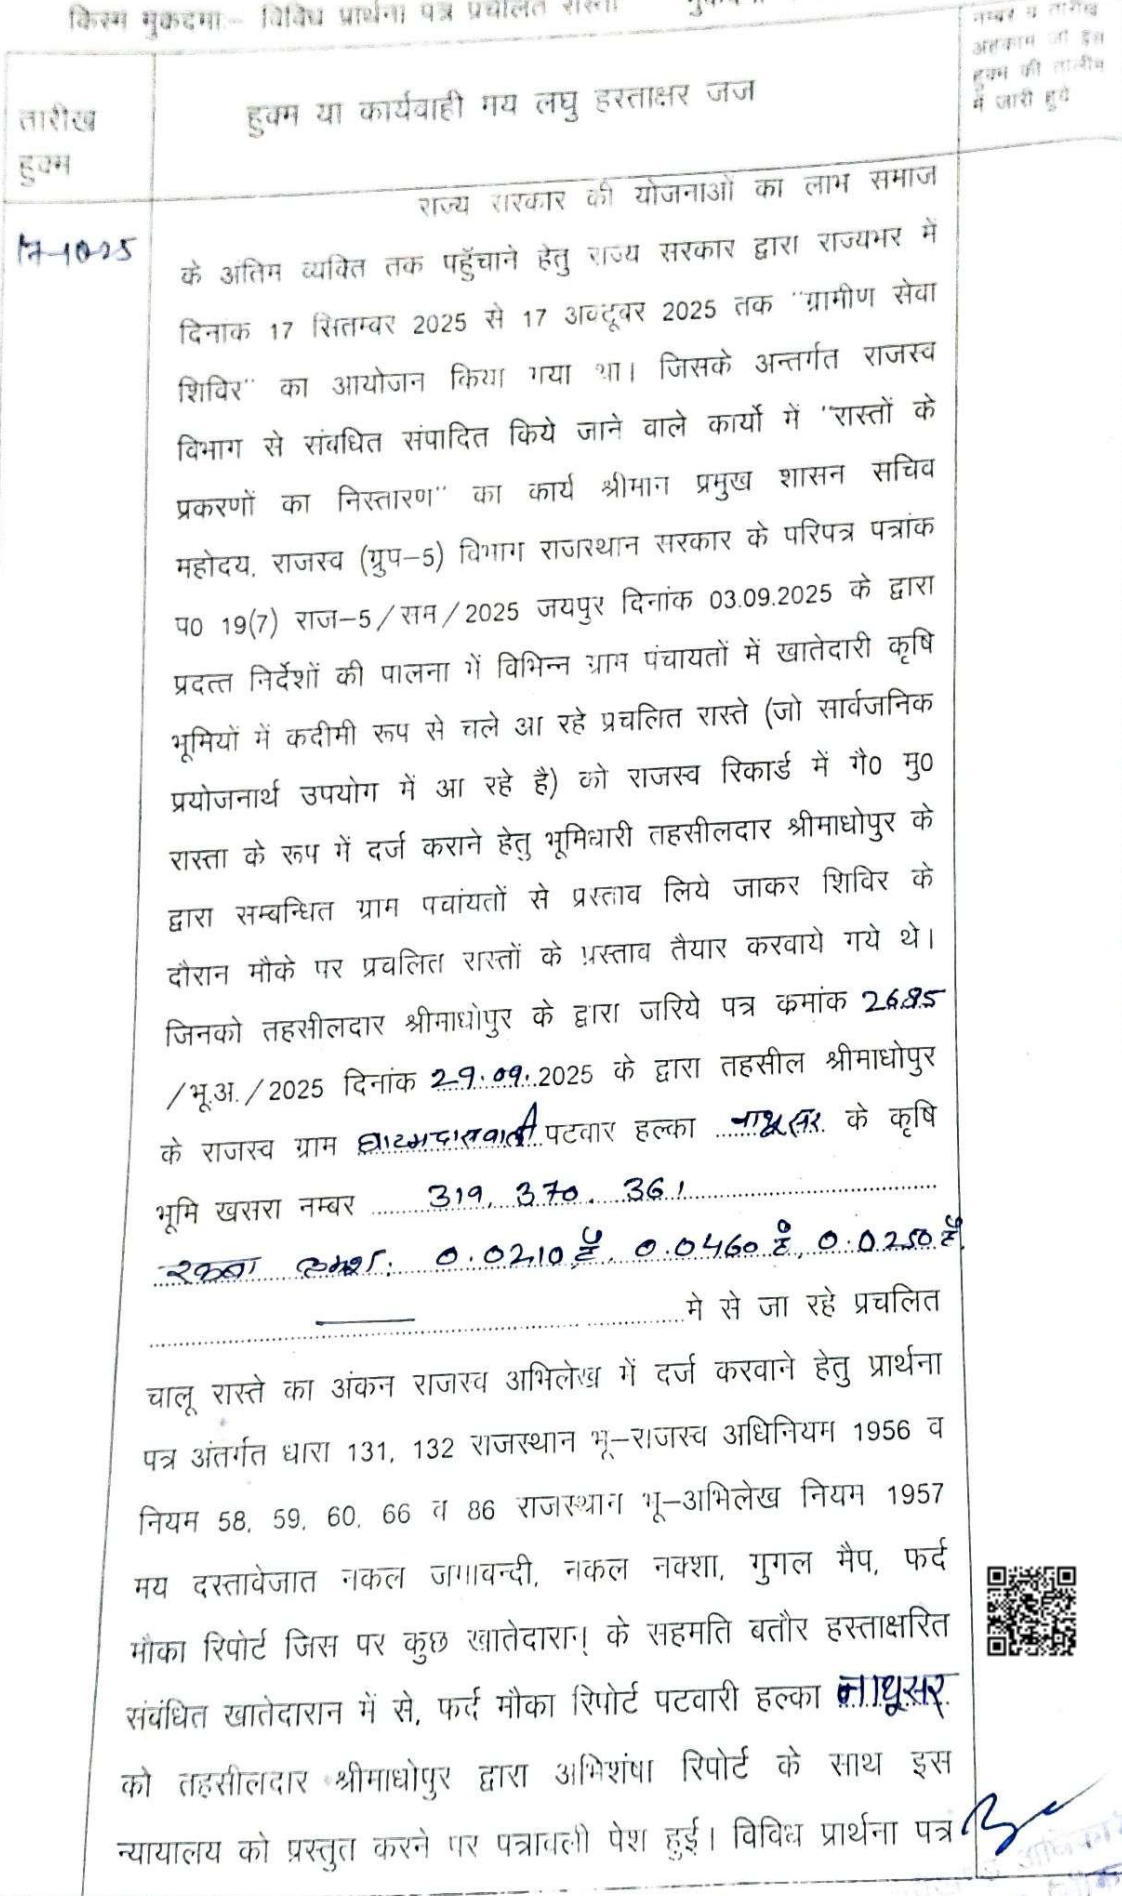 किस्म मुकदमा:- विविध प्रार्थना पत्र प्रचलित रास्ता
नम्बर व तारीख
अहकाम जो इस
हुक्म की तालीम
में जारी हुये
तारीख
हुक्म
हुक्म या कार्यवाही मय लघु हस्ताक्षर जज
17-10-25
राज्य सरकार की योजनाओं का लाभ समाज
के अंतिम व्यक्ति तक पहुँचाने हेतु राज्य सरकार द्वारा राज्यभर में
दिनांक 17 सितम्वर 2025 से 17 अक्टूबर 2025 तक "ग्रामीण सेवा
शिविर" का आयोजन किया गया था। जिसके अन्तर्गत राजस्व
विभाग से संबधित संपादित किये जाने वाले कार्यो में "रास्तों के
प्रकरणों का निस्तारण" का कार्य श्रीमान प्रमुख शासन सचिव
महोदय, राजस्व (ग्रुप-5) विभाग राजस्थान सरकार के परिपत्र पत्रांक
प0 19(7) राज-5/सम/2025 जयपुर दिनांक 03.09.2025 के द्वारा
प्रदत्त निर्देशों की पालना में विभिन्न ग्राम पंचायतों में खातेदारी कृषि
भूमियों में कदीमी रूप से चले आ रहे प्रचलित रास्ते (जो सार्वजनिक
प्रयोजनार्थ उपयोग में आ रहे है) को राजस्व रिकार्ड में गै0 मु0
रास्ता के रूप में दर्ज कराने हेतु भूमिधारी तहसीलदार श्रीमाधोपुर के
द्वारा सम्बन्धित ग्राम पचांयतों से प्रस्ताव लिये जाकर शिविर के
दौरान मौके पर प्रचलित रास्तों के प्रस्ताव तैयार करवाये गये थे।
जिनको तहसीलदार श्रीमाधोपुर के द्वारा जरिये पत्र क्रमांक 2685
/भू.अ./2025 दिनांक 29.09.2025 के द्वारा तहसील श्रीमाधोपुर
के राजस्व ग्राम पटवार हल्का नाथूसर के कृषि
भूमि खसरा नम्बर 319, 370, 361
रकबा क्रमश: 0.0210 है, 0.0460 है, 0.0250 है,
मे से जा रहे प्रचलित
चालू रास्ते का अंकन राजस्व अभिलेख में दर्ज करवाने हेतु प्रार्थना
पत्र अंतर्गत धारा 131, 132 राजस्थान भू-राजस्व अधिनियम 1956 व
नियम 58, 59, 60, 66 व 86 राजस्थान भू-अभिलेख नियम 1957
मय दस्तावेजात नकल जमाबन्दी, नकल नक्शा, गुगल मैप, फर्द
मौका रिपोर्ट जिस पर कुछ खातेदारान! के सहमति बतौर हस्ताक्षरित
संबंधित खातेदारान में से, फर्द मौका रिपोर्ट पटवारी हल्का नाथूसर
को तहसीलदार श्रीमाधोपुर द्वारा अभिशंषा रिपोर्ट के साथ इस
न्यायालय को प्रस्तुत करने पर पत्रावली पेश हुई। विविध प्रार्थना पत्र